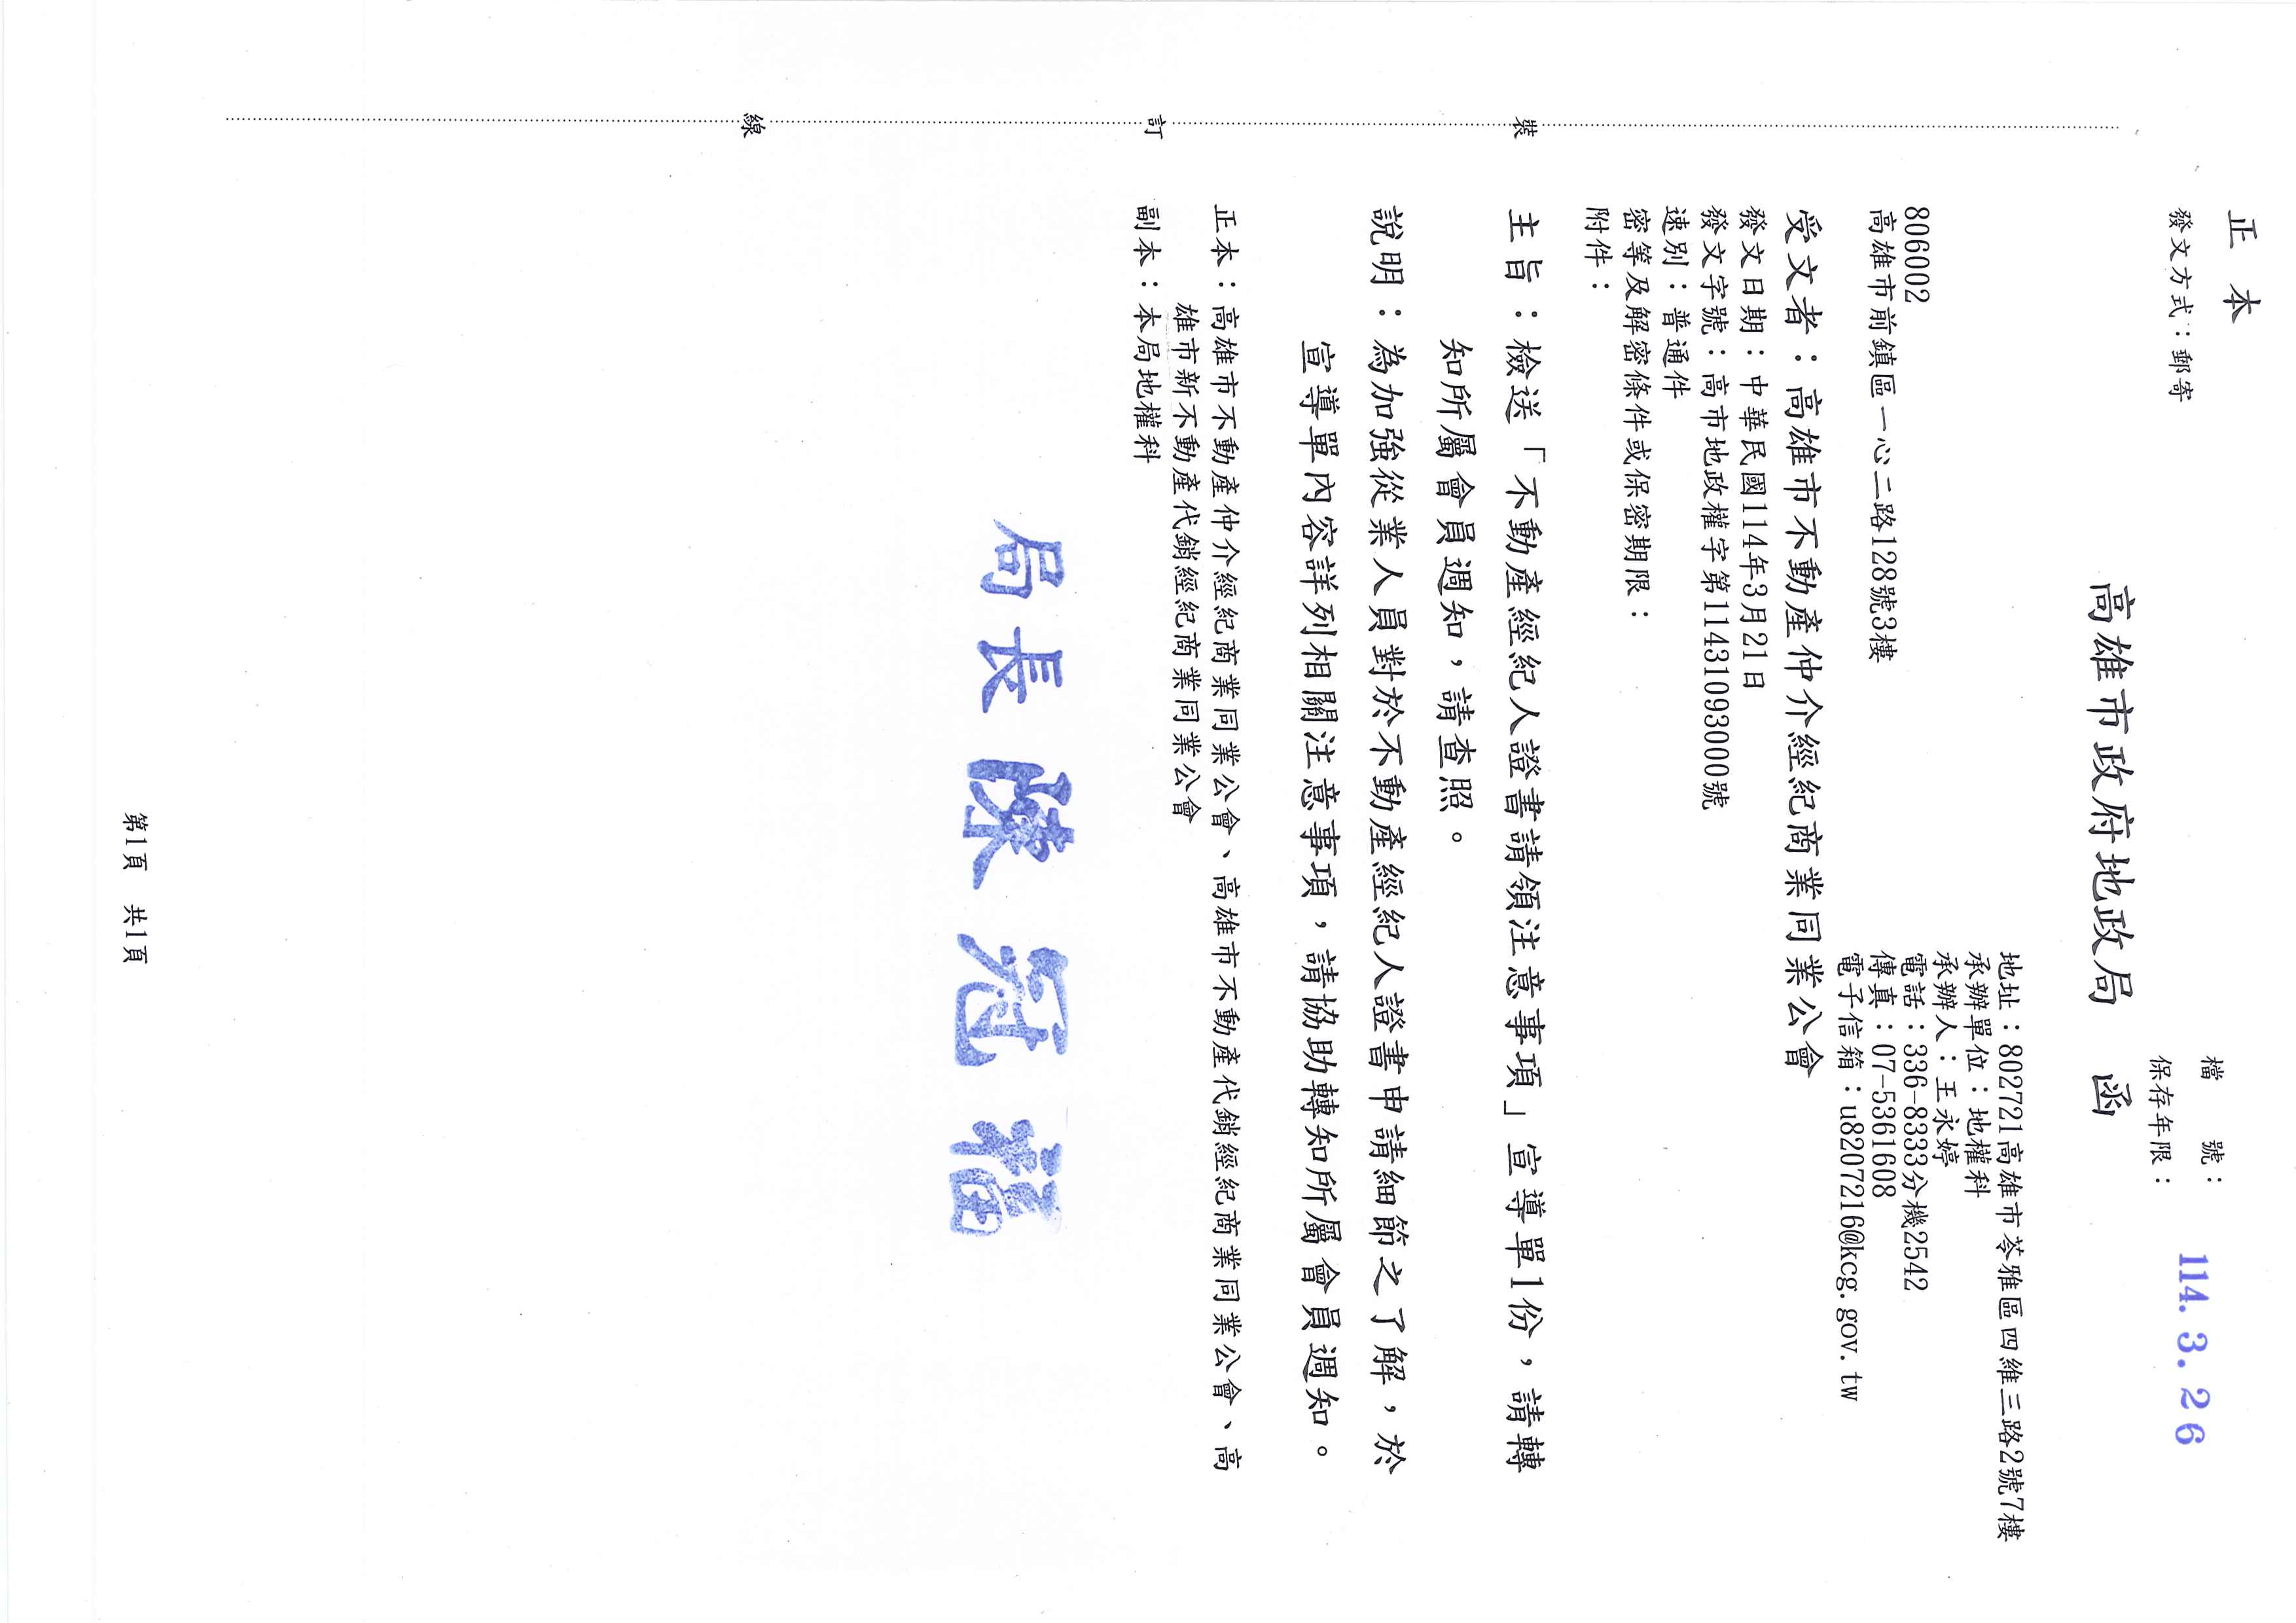 正本
發文方式：郵寄
檔　　號：
保存年限：
114. 3. 26
高雄市政府地政局　函
地址：802721高雄市苓雅區四維三路2號7樓
承辦單位：地權科
承辦人：王永婷
電話：336-8333分機2542
傳真：07-5361608
電子信箱：u8207216@kcg.gov.tw
806002
高雄市前鎮區一心二路128號3樓
受文者：高雄市不動產仲介經紀商業同業公會
發文日期：中華民國114年3月21日
發文字號：高市地政權字第11431093000號
速別：普通件
密等及解密條件或保密期限：
附件：
主旨：檢送「不動產經紀人證書請領注意事項」宣導單1份，請轉
知所屬會員週知，請查照。
說明：為加強從業人員對於不動產經紀人證書申請細節之了解，於
宣導單內容詳列相關注意事項，請協助轉知所屬會員週知。
正本：高雄市不動產仲介經紀商業同業公會、高雄市不動產代銷經紀商業同業公會、高
雄市新不動產代銷經紀商業同業公會
副本：本局地權科
局長陳冠福
裝
訂
線
第1頁　共1頁